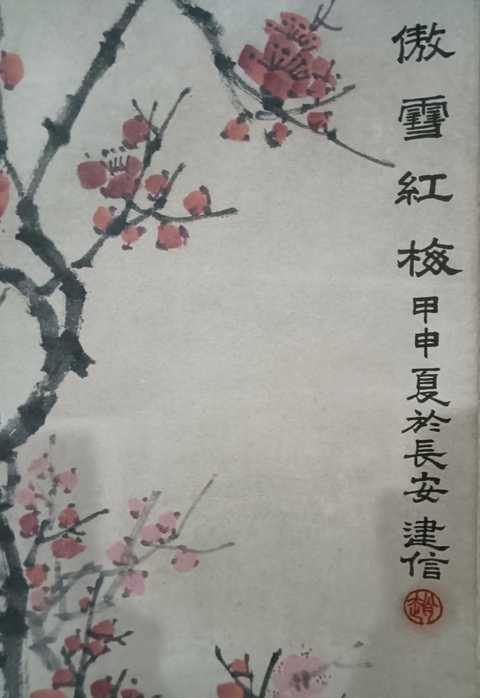 傲雪紅梅甲申夏於長安建信
趙